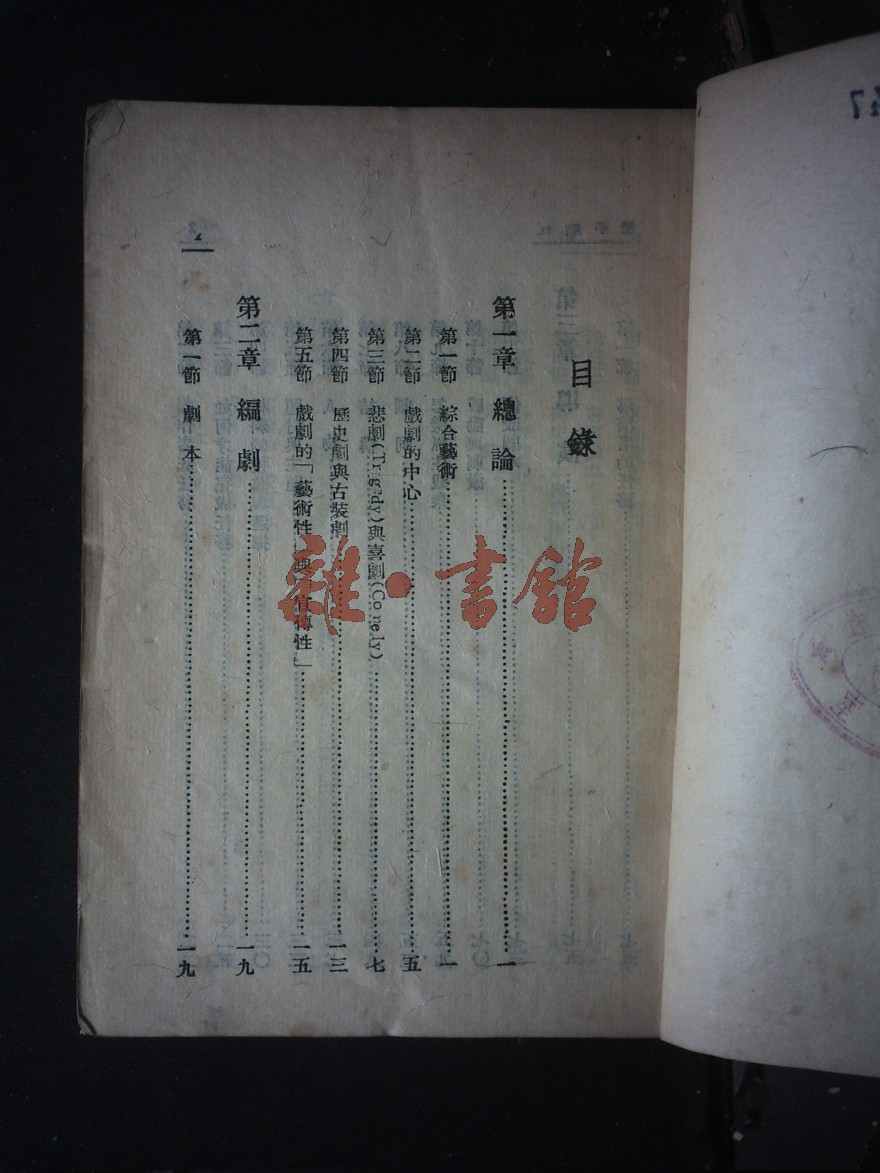 目錄
第一章 總論……一
第一節 綜合藝術……一
第二節 戲劇的中心……五
第三節 悲劇(Tragedy)與喜劇(Conely)……七
第四節 歷史劇與古裝劇……一三
第五節 戲劇的「藝術性」與「宣傳性」……一五
第二章 編劇……一九
第一節 劇本……一九
雜·書館